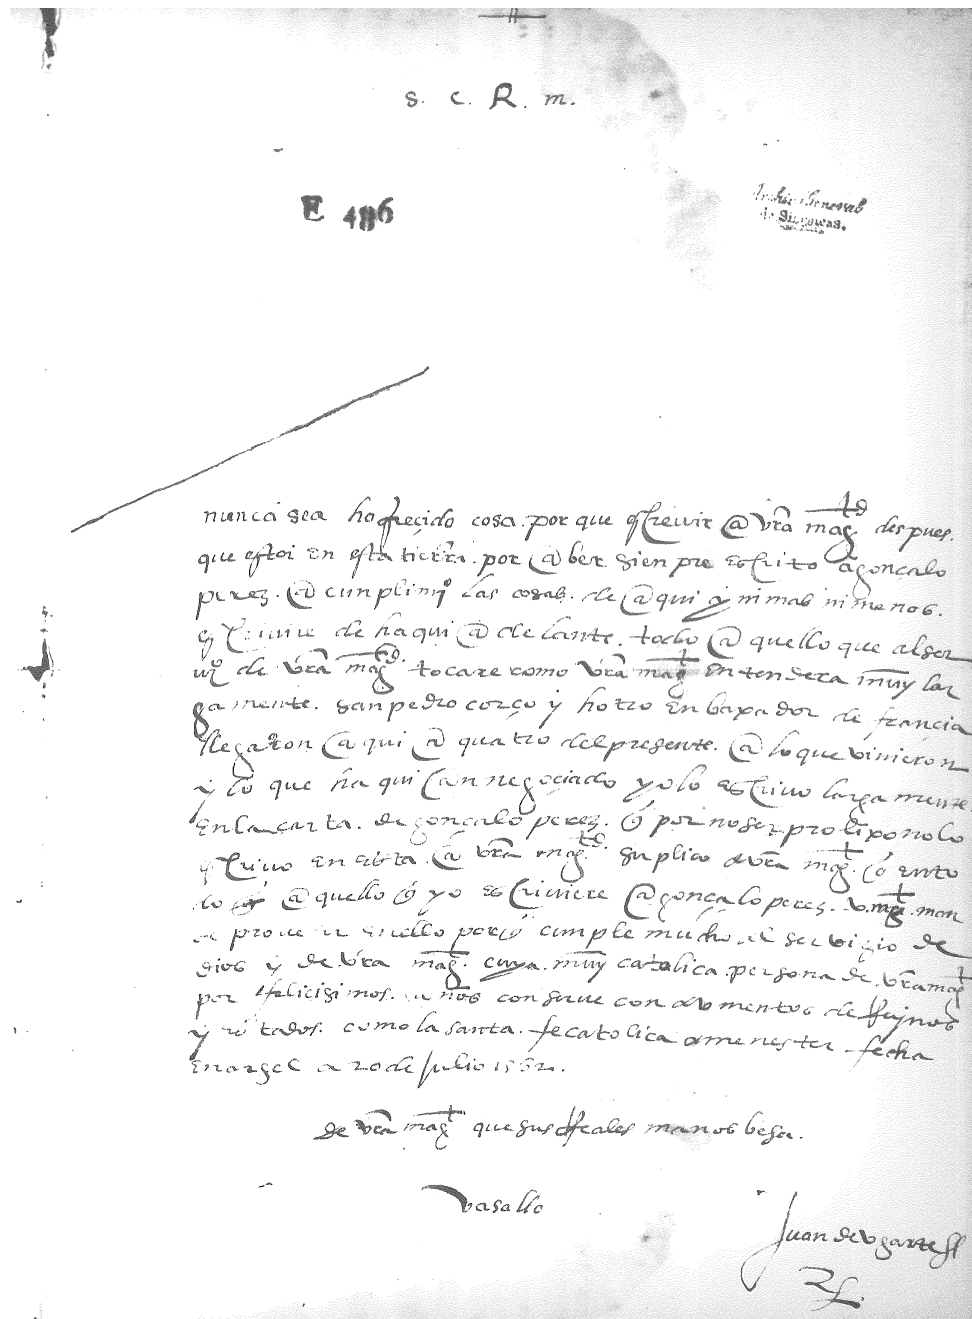 S. C. R. m.
E 486
Archivo General
de Simancas.
nunca sea hofrecido cosa. por que escrevir a vra magtd despues.
que estoi en esta tierra. por aber sienpre escrito a gonçalo
perez. a cunplimio las cosas. de aqui y ni mas ni menos.
escrivire de haqui adelante. todo aquello que al ser
uio de vra magd tocare como vra magt entendera muy lar
gamente. sanpedro corço y hotro enbaxador de francia
llegaron aqui a quatro del presente. a lo que vinieron
y lo que haqui an negociado yo lo escrivo largamente
en la carta. de gonçalo perez. q por no ser prolixo no lo
escrivo en esta. a vra magtd suplico a vra magt. q en to
do aquello q yo escriviere a gonçalo perez. v. magt. man
de proveer en ello porq cumple mucho al servizio de
dios y de vra magt. cuya. muy catolica persona de vra magt
por felicisimos. años conserve con aumentos de Reynos
y estados. como la santa. fe catolica a menester. fecha
en argel a 20 de Julio 1562.
de vra magt que sus Reales manos besa.
vasallo
Juan de ugarte